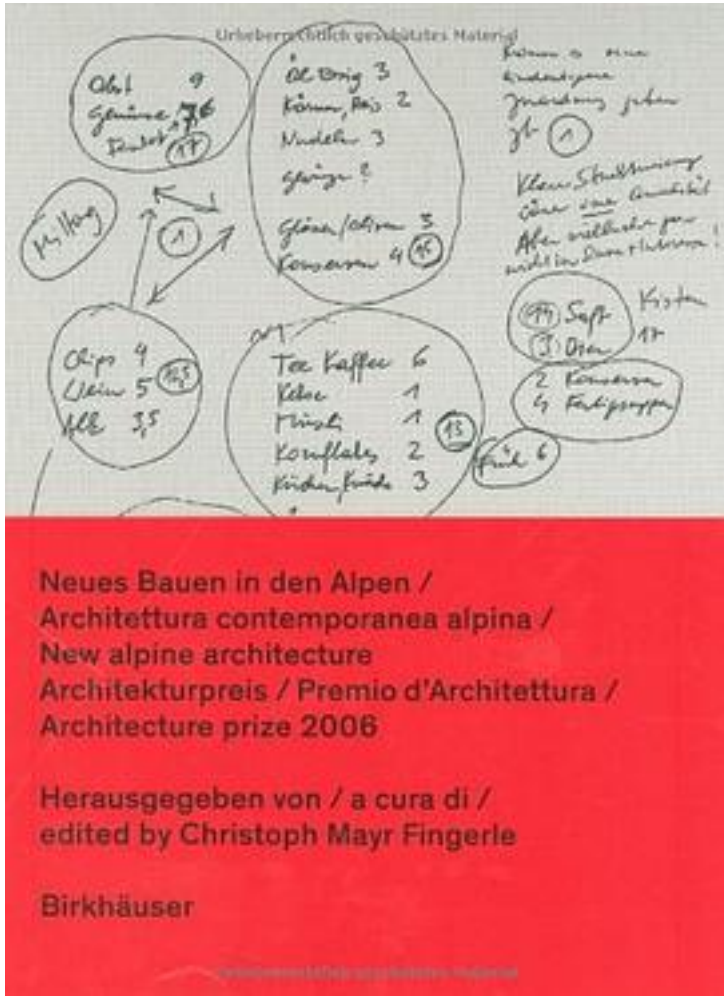 Urheberrechtlich geschütztes Material
Obst 9
Gemüse 7,6
17
Öl Essig 3
Körner, Reis 2
Nudeln 3
Gewürze ?
Gläser/Oliven 3
Konserven 4 16
1
zb 1
Klare Strukturierung
ohne eine
Aber vielleicht gar
nicht in Ihrem Interesse!
Chips 4
Wein 5 12,5
Alk 3,5
Tee Kaffee 6
Kekse 1
Müsli 1
Kornflakes 2 13
3
Früh 6
Kisten
14 Saft 17
3 Dosen
2 Konserven
4 Fertigsuppen
Neues Bauen in den Alpen /
Architettura contemporanea alpina /
New alpine architecture
Architekturpreis / Premio d'Architettura /
Architecture prize 2006
Herausgegeben von / a cura di /
edited by Christoph Mayr Fingerle
Birkhäuser
Urheberrechtlich geschütztes Material